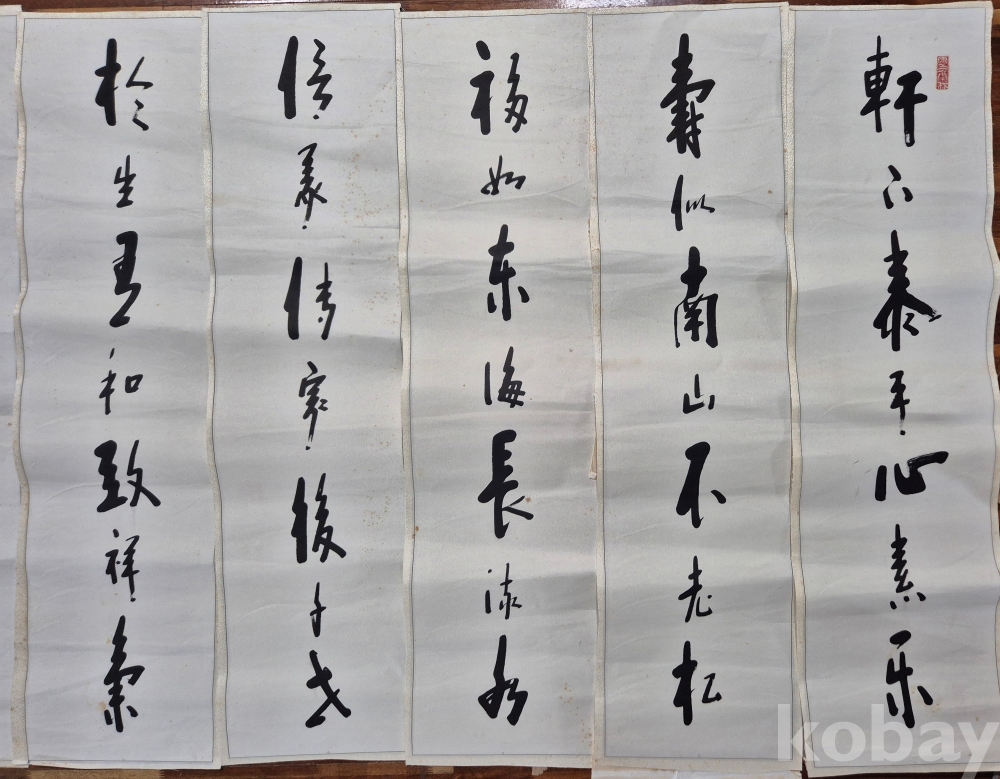 軒下泰平心素樂
壽似南山不老松
福如東海長流水
信義傳家後子世
於生和致祥氣
kobay